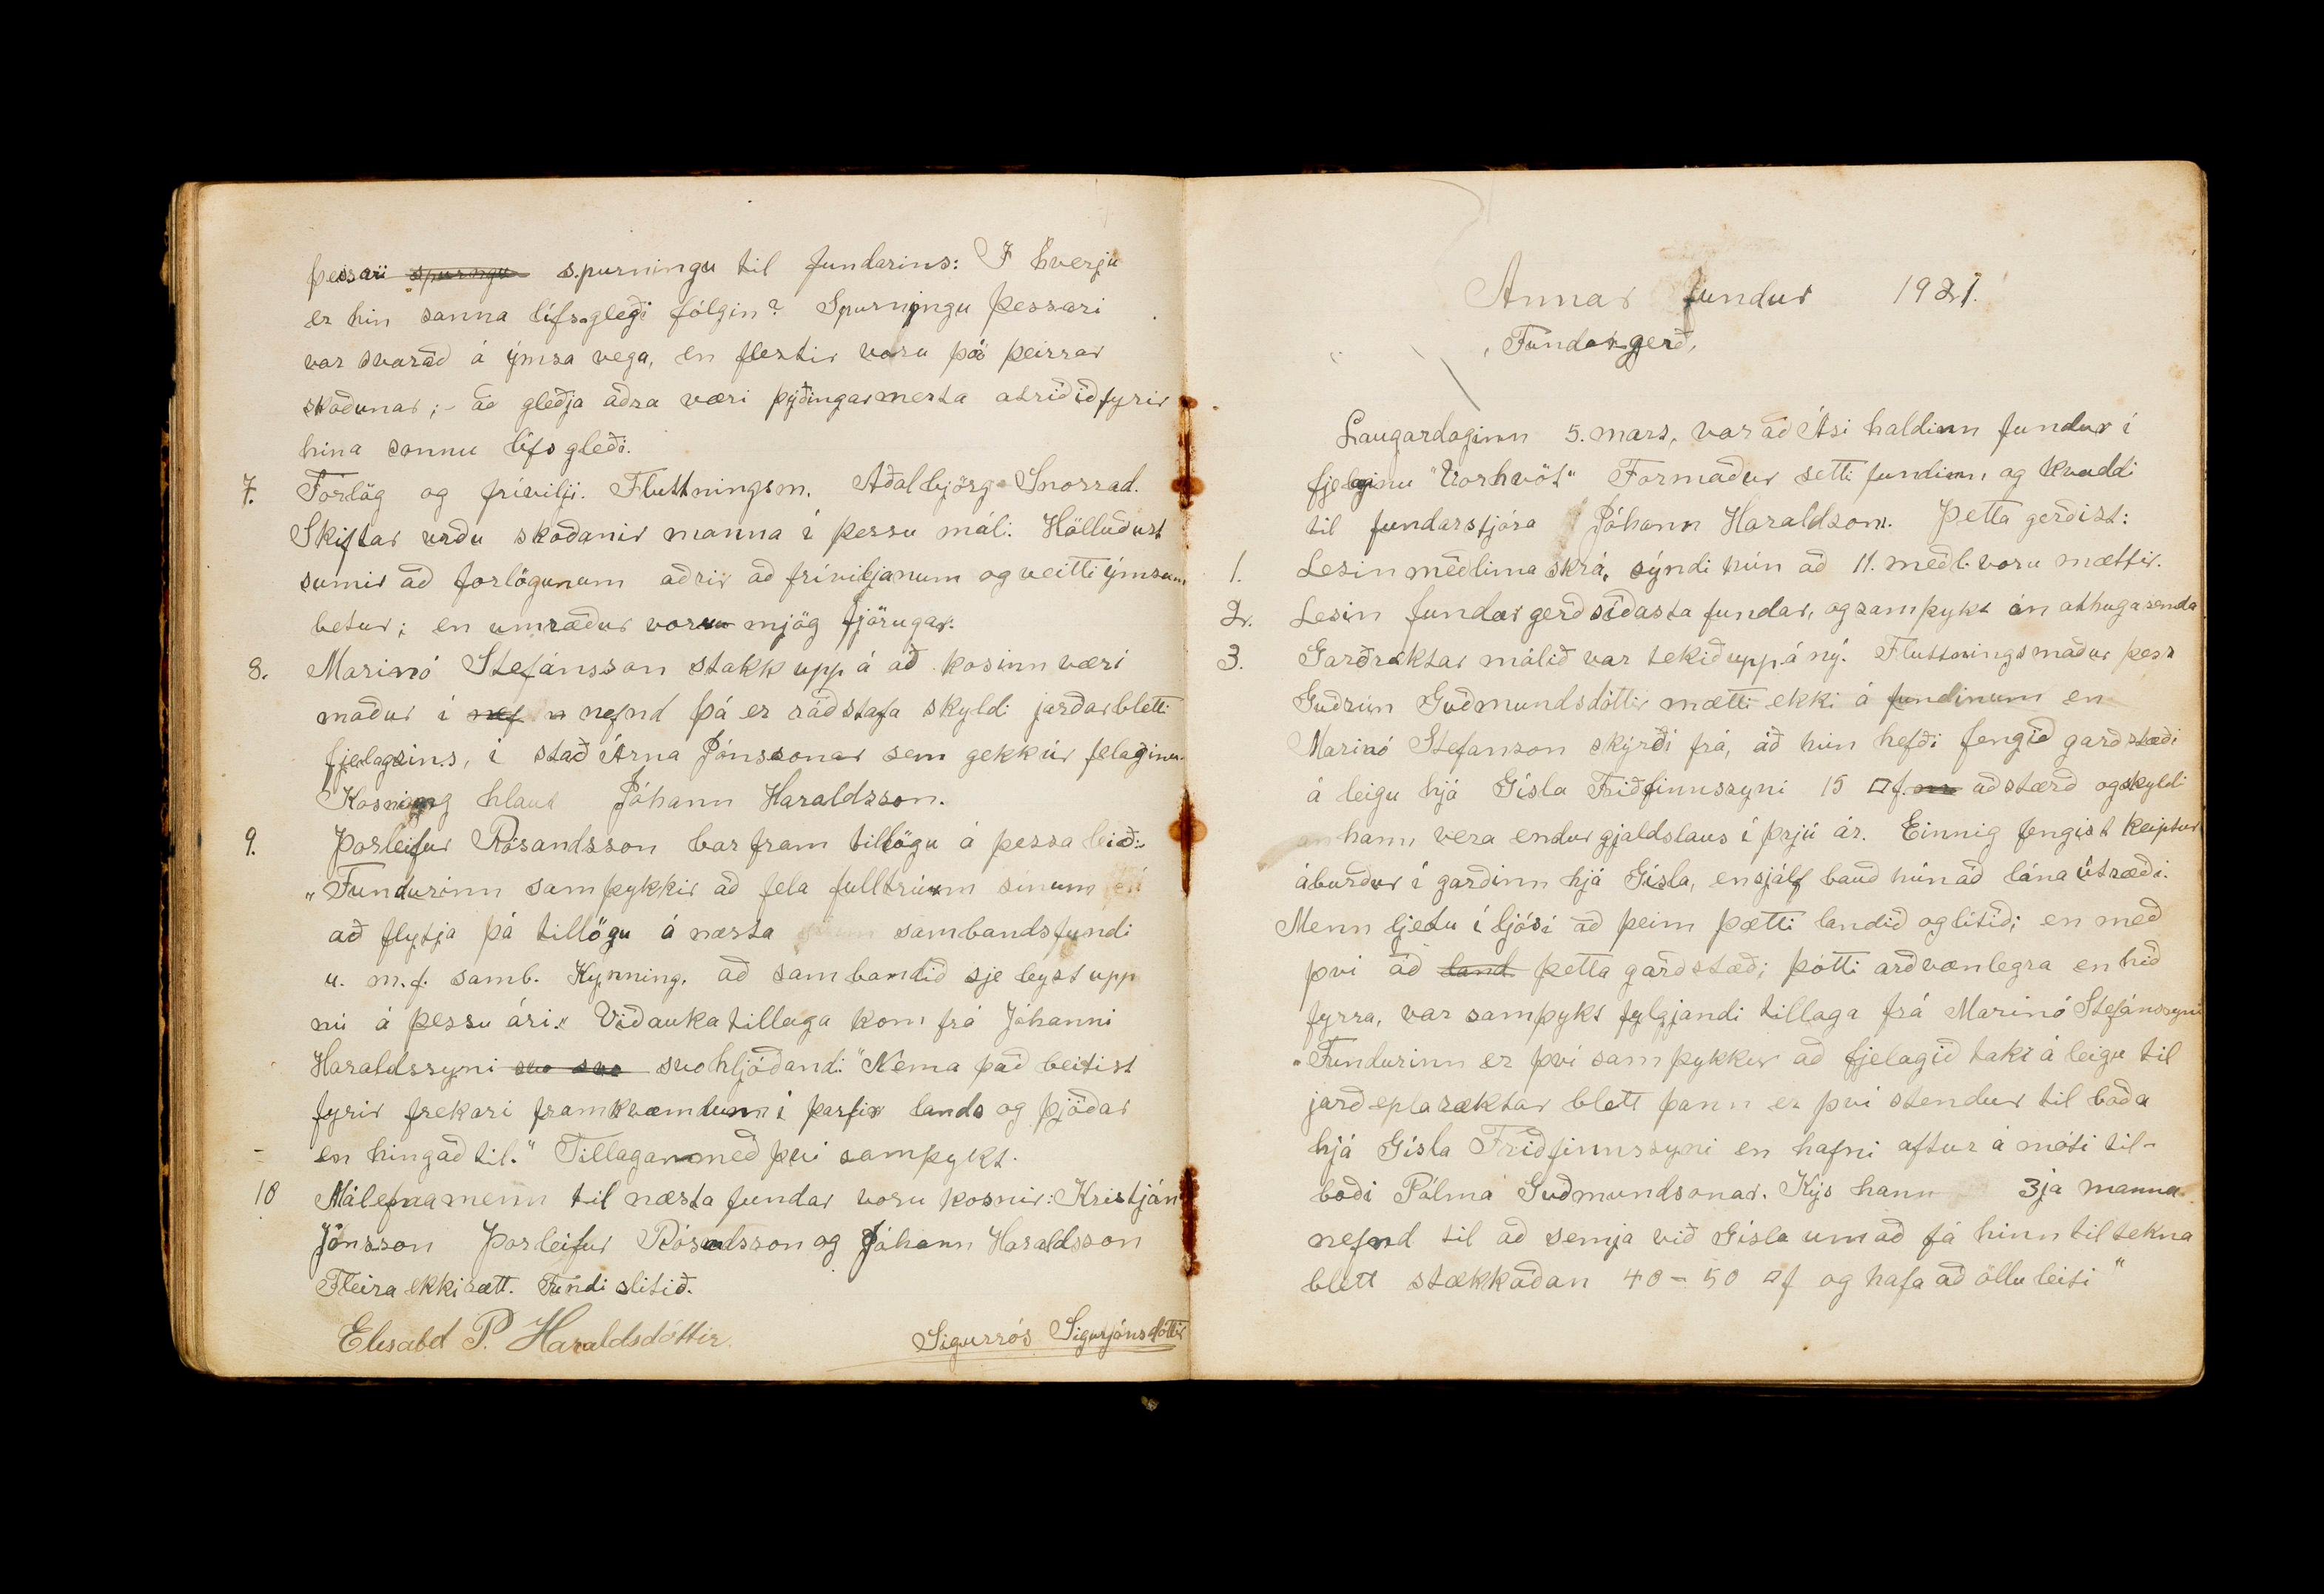 þessari spurngu spurningu til fundarins: I hverju
er hin sanna lífsgleði fólgin? Spurningu þessari
var svarað á ýmsa vega, en flestir voru þó þeirrar
skoðunar; - að gleðja aðra væri þýðingarmesta atriðið fyrir
hina sönnu lífsgleði.
7. Forlög og frívilji. Fluttningsm. Aðalbjörg Snorrad.
Skiftar urðu skoðanir manna í þessu máli. Hölluðust
sumir að forlögunum aðrir að fríviljanum og veitti ýmsum
betur; en umræður voru mjög fjörugar.
8. Marinó Stefánsson stakk upp á að kosinn væri
maður í nef n nefnd þá er ráðstafa skyldi jarðarbletti
fjelagsins, í stað Árna Jónssonar sem gekk úr felaginu.
Kosning hlaut Jóhann Haraldsson.
9. Þorleifur Rósandsson bar fram tillögu á þessa leið:
„Fundurinn samþykkir að fela fulltrúum sínum
að flytja þá tillögu á næsta sambandsfundi
u. m. f. samb. Kynning, að sambandið sje leyst upp
nú á þessu ári." Viðaukatillaga kom frá Jóhanni
Haraldssyni svo svo svohljóðandi: "Nema það beitist
fyrir frekari framkvæmdum í þarfir lands og þjóðar
en hingað til." Tillagan með því samþykt.
10 Málefnamenn til næsta fundar voru kosnir: Kristján
Jónsson Þorleifur Rósandsson og Jóhann Haraldsson
Fleira ekki rætt. Fundi slitið.
Elisabet P. Haraldsdóttir. Sigurrós Sigurjónsdóttir
Annar fundur 1921.
Fundargerð,
Laugardaginn 5. mars, var að Ási haldinn fundur í
fjelaginu "Vorhvöt" Formaður setti fundinn, og kvaddi
til fundarstjóra Jóhann Haraldsson. Þetta gerðist:
1. Lesin meðlima skrá, sýndi hún að 11. meðl. voru mættir.
2. Lesin fundargerð síðasta fundar, og samþykt án athugasemda
3. Garðræktar málið var tekið upp á ný. Fluttningsmaður þess
Guðrún Guðmundsdóttir mætti ekki á fundinum en
Marinó Stefanson skýrði frá, að hún hefði fengið garðstæði
á leigu hjá Gísla Friðfinnssyni 15 □f. að stærð og skyldi
hann vera endurgjaldslaus í þrjú ár. Einnig fengist keiptur
áburður í garðinn hjá Gísla, en sjálf bauð hún að lána útsæði.
Menn ljetu í ljósi að þeim þætti landið oglítið; en með
því að land þetta garðstæði þótti arðvænlegra en hið
fyrra, var samþykt fylgjandi tillaga frá Marinó Stefánssyni
„Fundurinn er því samþykkur að fjelagið taki á leigu til
jarðeplaræktar blett þann er því stendur til boða
hjá Gísla Friðfinnssyni en hafni aftur á móti til-
boði Pálma Guðmundsonar. Kýs hann 3ja manna
nefnd til að semja við Gísla um að fá hinn tiltekna
blett stækkaðan 40 - 50 □f og hafa að öllu leiti "